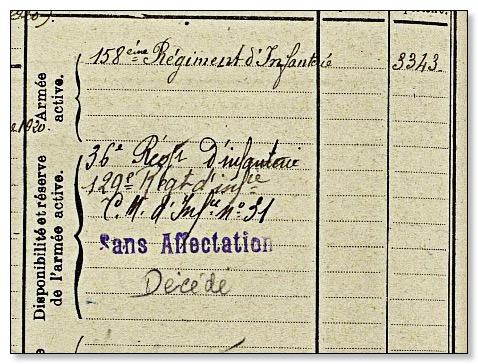 Armée active.
158ème Régiment d'Infanterie 3343
1920.
Disponibilité et réserve de l'armée active.
36e Régt d'infanterie
129e Régt d'infie
C. M. d'Infie n° 31
Sans Affectation
Décédé